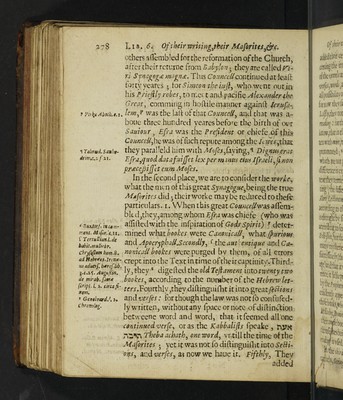 278 LIB. 6. Of their writing, their Masorites, &c.
others assembled for the reformation of the Church,
after their returne from Babylon; they are called Vi-
ri Synagogæ magnæ. This Councell continued at least
forty yeares; for Simeon the iust, who went out in
his Priestly robes, to meet and pacifie Alexander the
Great, comming in hostile manner against Ierusa-
lem, was the last of that Councell, and that was a-
boue three hundred yeares before the birth of our
Sauiour. Esra was the President or chiefe of this
Councell, he was of such repute among the Iewes, that
they paralleld him with Moses, saying, Dignus erat
Esra, quod data fuisset lex per manus eius Israeli, si non
præcessisset eum Moses.
In the second place, we are to consider the worke,
what the men of this great Synagogue, being the true
Masorites did; their worke may be reduced to these
particulars. 1. When this great Councell was assem-
bled, they, among whom Esra was chiefe (who was
assisted with the inspiration of Gods Spirit) deter-
mined what bookes were Canonicall, what spurious
and Apocryphall. Secondly, the autentique and Ca-
nonicall bookes were purged by them, of all errors
crept into the Text in time of their captiuity. Third-
ly, they digested the old Testament into twenty two
bookes, according to the number of the Hebrew let-
ters. Fourthly, they distinguisht it into great sections
and verses: for though the law was not so confused-
ly written, without any space or note of distinction
betweene word and word, that it seemed all one
continued verse, or as the Kabbalists speake, אחת
תיבה Theba achath, one word, vntill the time of the
Masorites; yet it was not so distinguisht into Secti-
ons, and verses, as now we haue it. Fifthly, They
added